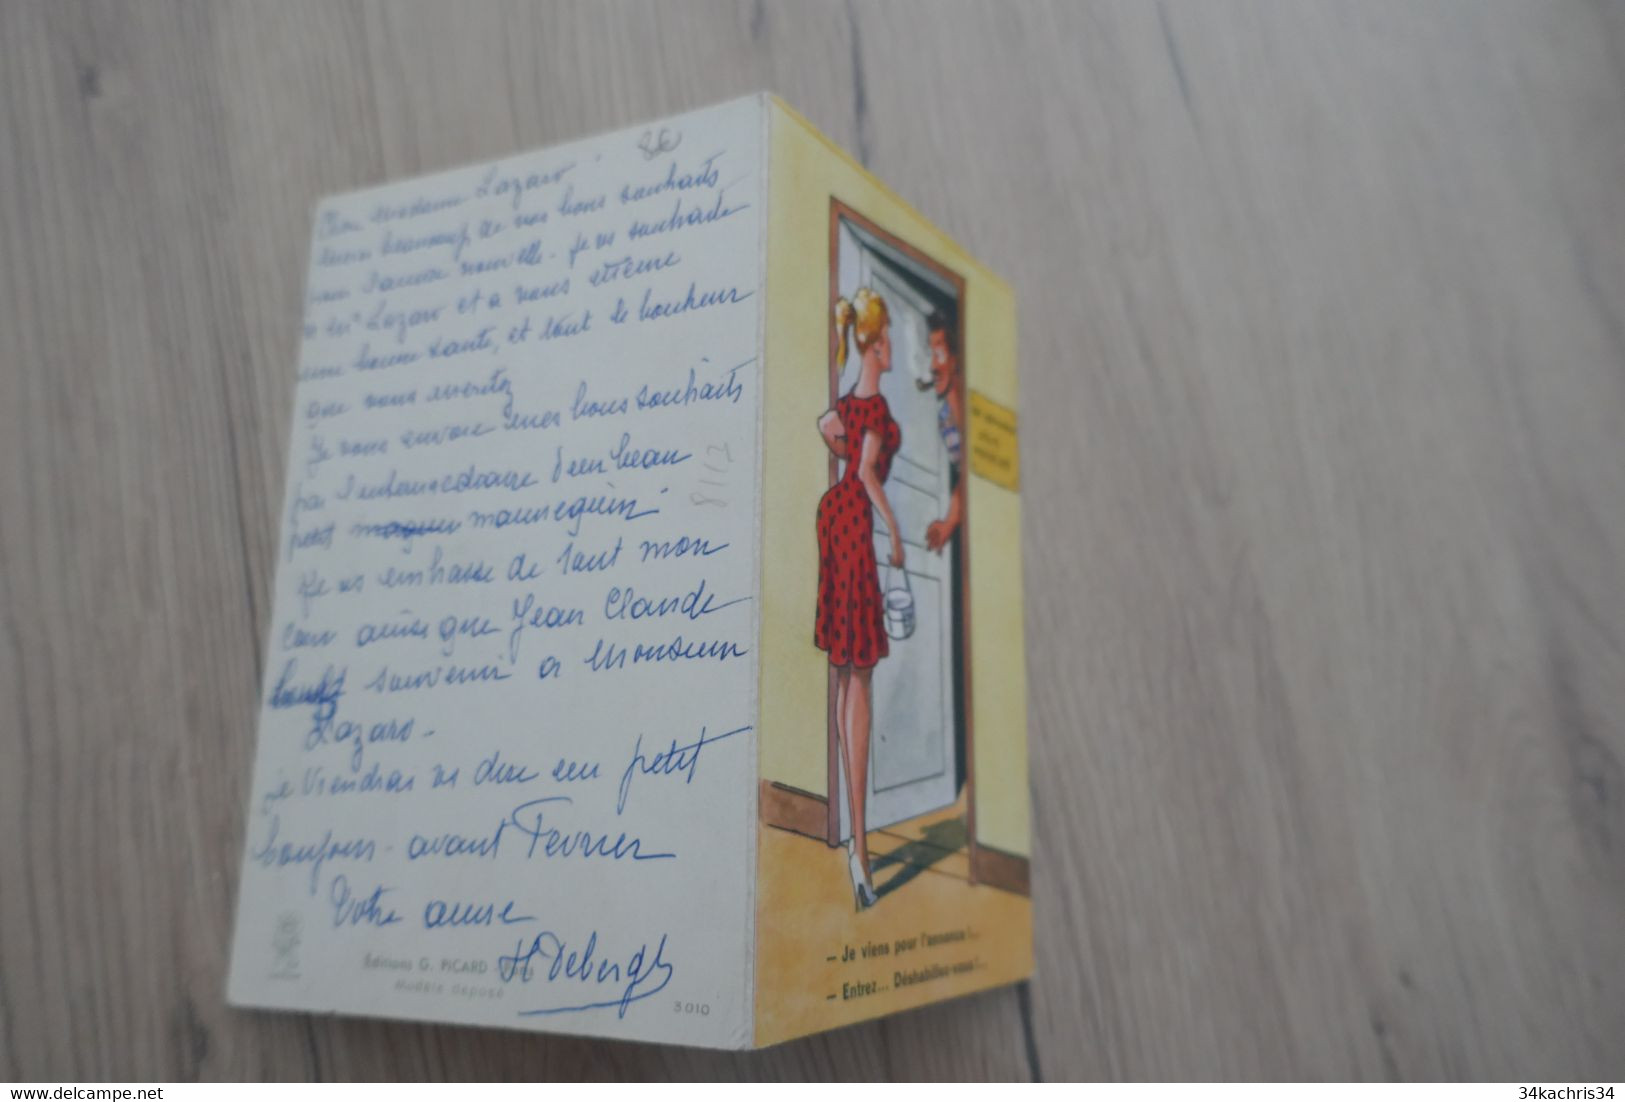 8€
Chère Madame Lazaro
Merci beaucoup de vos bons souhaits
pour l'année nouvelle - Je vs souhaite
a Mr Lazaro et a vous même
une bonne santé, et tout le bonheur
que vous méritez
Je vous envoie mes bons souhaits
par l'intermédiaire d'un beau
petit mannequin.
Je vs embrasse de tout mon
cœur ainsi que Jean Claude
souvenir a Monsieur
Lazaro -
je viendrai vs dire un petit
bonjour - avant Fevrier
Votre amie
H Debergh
Éditions G. PICARD - Paris
Modèle déposé
3.010
- Je viens pour l'annonce !...
- Entrez... Déshabillez-vous !...
34kachris34